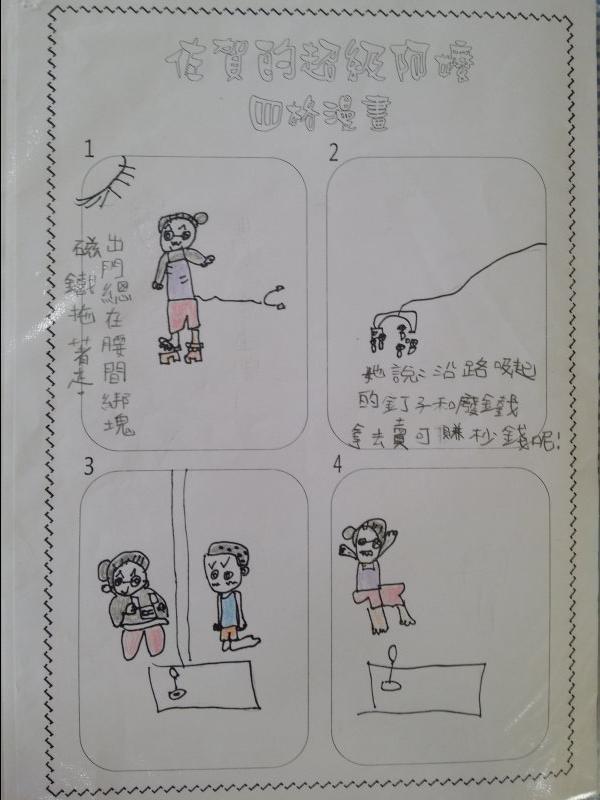 佐賀的超級阿嬤
四格漫畫
1
出門總在腰間綁塊
磁鐵拖著走.
2
她說:沿路吸起
的釘子和廢鐵
拿去賣可賺杪錢呢!
3
4